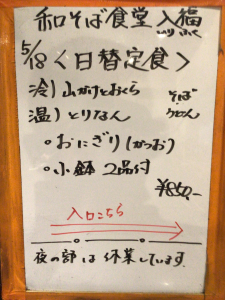 和そば食堂 入福
5/18 <日替定食>
冷) 山かけとおくら そば
温) とりなん うどん
。おにぎり(かつお)
。小鉢 2品付
¥850.-
入口こちら
夜の部は休業しています